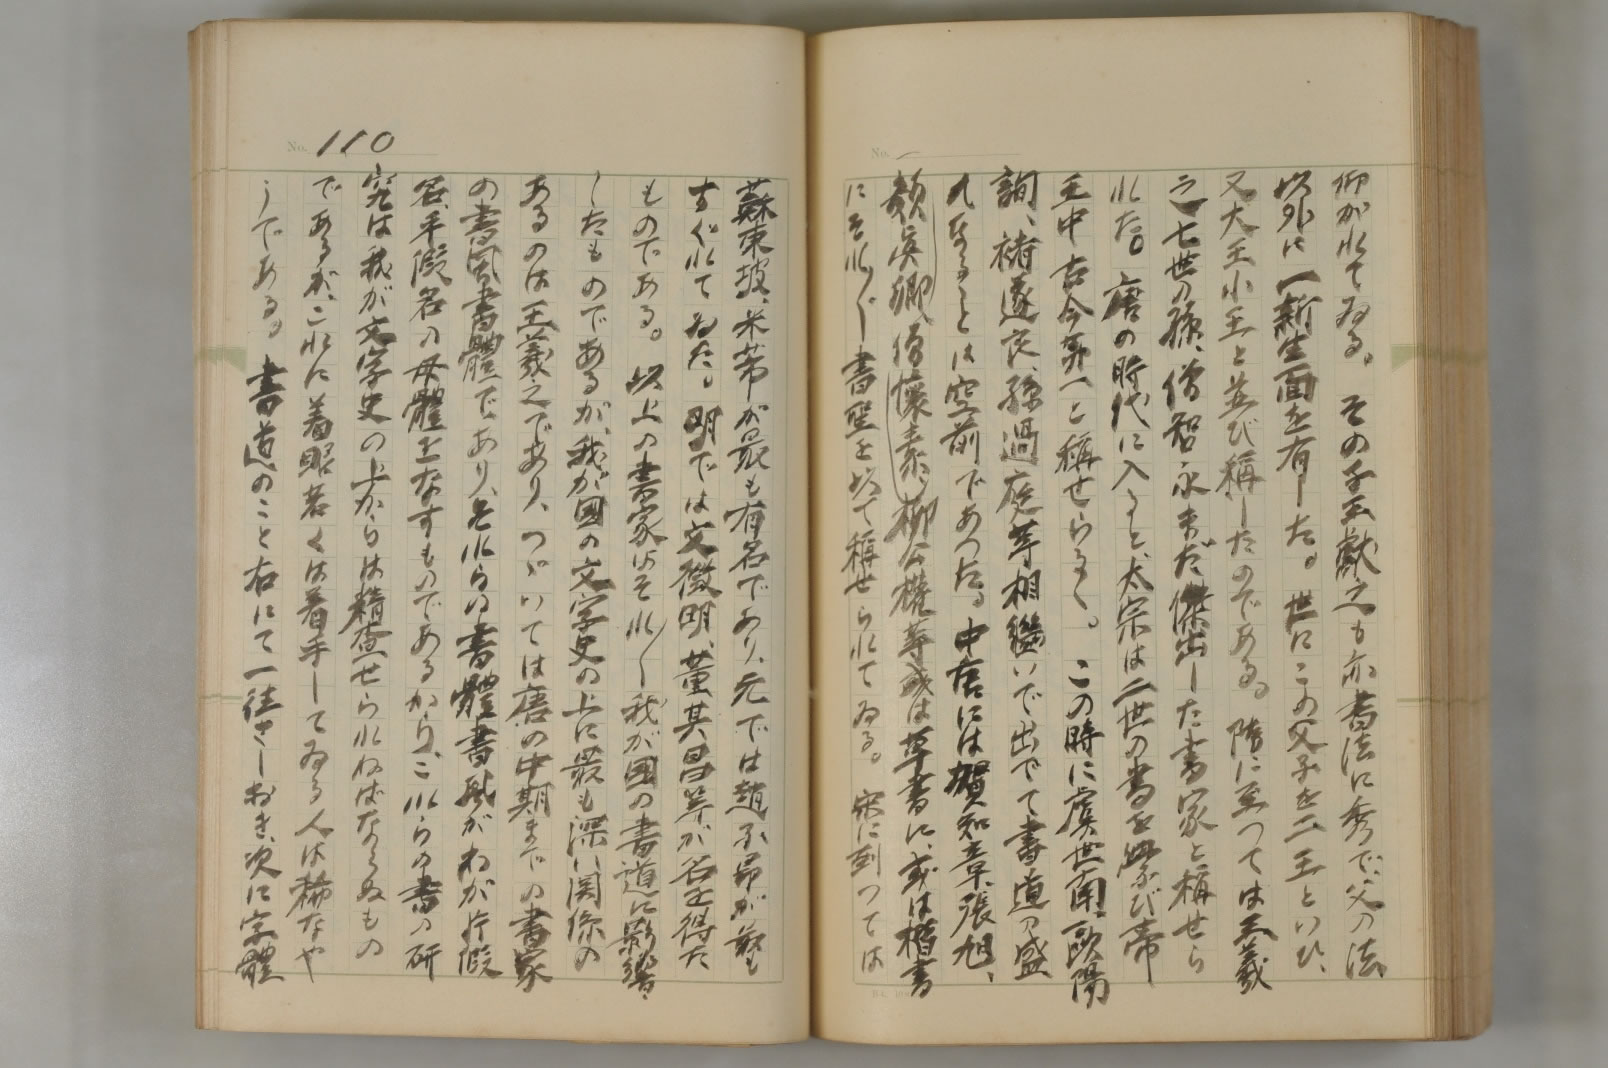 抑がれてゐる。その子王献之も亦書法に秀で、父の法
以外に一新生面を有した。世にこの父子を二王といひ、
又大王小王と並び稱したのである。隋に至つては王羲
之七世の孫、僧智永まだ傑出した書家と稱せら
れた。唐の時代に入ると、太宗は二世の書を學び帝
王中古今第一と稱せらる。この時に虞世南、歐陽
詢、褚遂良、孫過庭等相繼いで出でて書道の盛
なることは空前であつた。中唐には賀知章、張旭、
顏眞卿、僧懷素、柳公權等或は草書に、或は楷書
にそれ〲書聖を以て稱せられてゐる。宋に到つては
No. 110
蘇東坡、米芾が最も有名であり、元では趙子昂が最も
すぐれてゐた。明では文徴明、董其昌等が名を得た
ものである。以上の書家はそれ〲我が國の書道に影響
したものであるが、我が國の文字史の上に最も深い関係の
あるのは王羲之であり、つゞいては唐の中期までの書家
の書風書體であり、それらの書體書風がわが片假
名、平假名の母體をなすものであるから、これらの書の研
究は我が文字史の上からは精査せられねばならぬもの
であるが、これに着眼若くは着手してゐる人は稀なや
うである。書道のこと右にて一往さしおき、次に字體